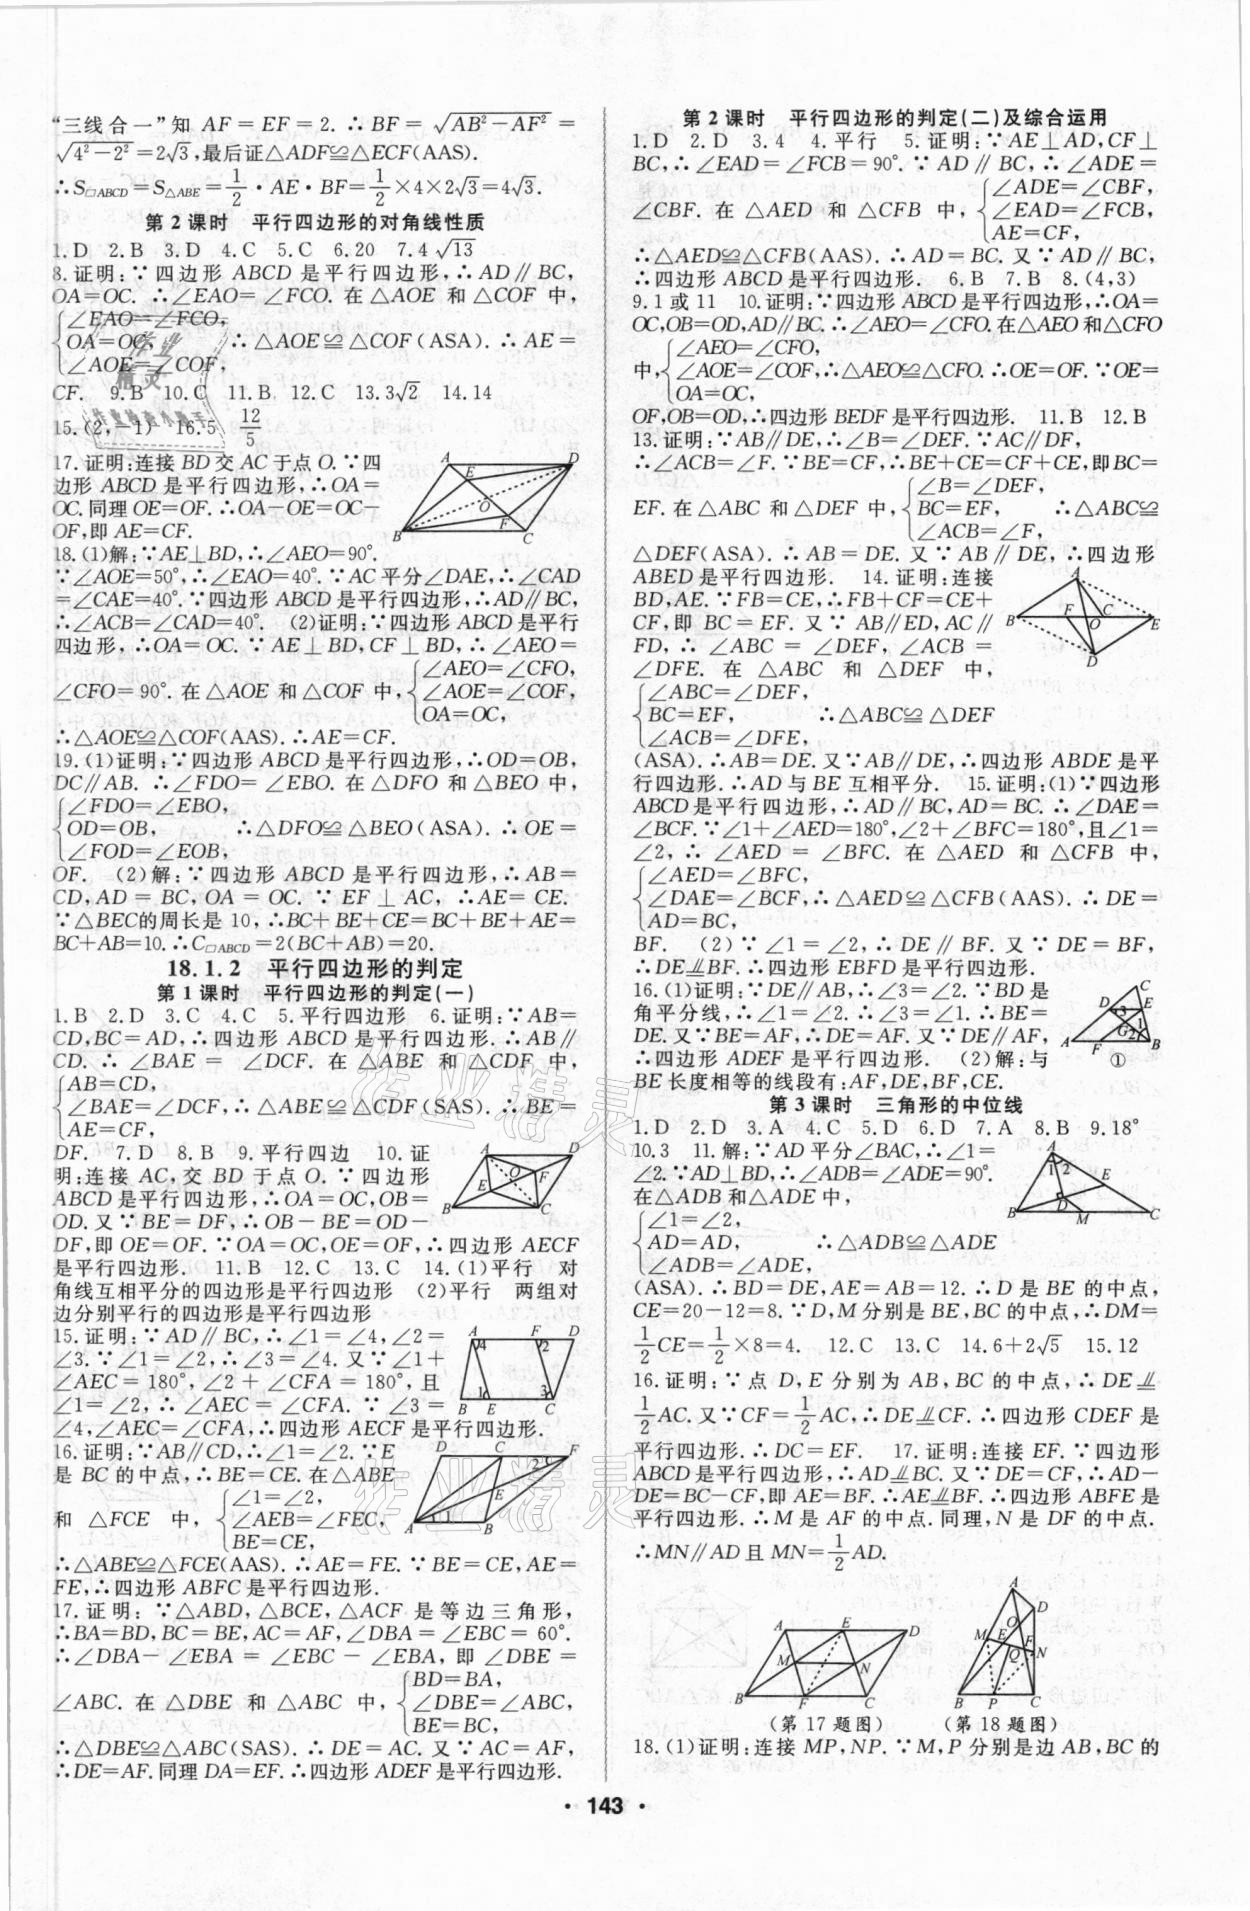 “三线合一”知 AF=EF=2.∴BF=√(AB²-AF²)=
√(4²-2²)=2√3,最后证△ADF≌△ECF(AAS).
∴S□ABCD=S△ABE=1/2·AE·BF=1/2×4×2√3=4√3.
第2课时 平行四边形的对角线性质
1.D 2.B 3.D 4.C 5.C 6.20 7.4√13
8.证明:∵四边形 ABCD 是平行四边形,∴AD∥BC,
OA=OC.∴∠EAO=∠FCO.在△AOE 和△COF 中,
{∠EAO=∠FCO,
OA=OC, ∴△AOE≌△COF(ASA).∴AE=
∠AOE=∠COF,
CF. 9.B 10.C 11.B 12.C 13.3√2 14.14
15.(2,-1) 16.5 12/5
17.证明:连接 BD 交 AC 于点 O.∵四
边形 ABCD 是平行四边形,∴OA=
OC.同理 OE=OF.∴OA-OE=OC-
OF,即 AE=CF.
A D E O F B C
18.(1)解:∵AE⊥BD,∴∠AEO=90°.
∵∠AOE=50°,∴∠EAO=40°.∵AC平分∠DAE,∴∠CAD
=∠CAE=40°.∵四边形 ABCD 是平行四边形,∴AD∥BC,
∴∠ACB=∠CAD=40°. (2)证明:∵四边形 ABCD 是平行
四边形,∴OA=OC.∵AE⊥BD,CF⊥BD,∴∠AEO=
∠CFO=90°.在△AOE 和△COF 中,{∠AEO=∠CFO,
∠AOE=∠COF,
OA=OC,
∴△AOE≌△COF(AAS).∴AE=CF.
19.(1)证明:∵四边形 ABCD 是平行四边形,∴OD=OB,
DC∥AB.∴∠FDO=∠EBO.在△DFO 和△BEO 中,
{∠FDO=∠EBO,
OD=OB, ∴△DFO≌△BEO(ASA).∴OE=
∠FOD=∠EOB,
OF. (2)解:∵四边形 ABCD 是平行四边形,∴AB=
CD,AD=BC,OA=OC.∵EF⊥AC,∴AE=CE.
∵△BEC的周长是 10,∴BC+BE+CE=BC+BE+AE=
BC+AB=10.∴C□ABCD=2(BC+AB)=20.
18.1.2 平行四边形的判定
第1课时 平行四边形的判定(一)
1.B 2.D 3.C 4.C 5.平行四边形 6.证明:∵AB=
CD,BC=AD,∴四边形 ABCD 是平行四边形.∴AB∥
CD.∴∠BAE=∠DCF.在△ABE 和△CDF 中,
{AB=CD,
∠BAE=∠DCF,∴△ABE≌△CDF(SAS).∴BE=
AE=CF,
DF. 7.D 8.B 9.平行四边形 10.证
明:连接 AC,交 BD 于点 O.∵四边形
ABCD 是平行四边形,∴OA=OC,OB=
OD.又∵BE=DF,∴OB-BE=OD-
DF,即 OE=OF.∵OA=OC,OE=OF,∴四边形 AECF
是平行四边形. 11.B 12.C 13.C 14.(1)平行 对
角线互相平分的四边形是平行四边形 (2)平行 两组对
边分别平行的四边形是平行四边形
A D O F E B C
15.证明:∵AD∥BC,∴∠1=∠4,∠2=
∠3.∵∠1=∠2,∴∠3=∠4.又∵∠1+
∠AEC=180°,∠2+∠CFA=180°,且
∠1=∠2,∴∠AEC=∠CFA.∵∠3=
∠4,∠AEC=∠CFA,∴四边形 AECF 是平行四边形.
A F D 4 2 1 3 B E C
16.证明:∵AB∥CD,∴∠1=∠2.∵E
是 BC 的中点,∴BE=CE.在△ABE
和△FCE 中,{∠1=∠2,
∠AEB=∠FEC,
BE=CE,
D C F 2 E 1 A B
∴△ABE≌△FCE(AAS).∴AE=FE.∵BE=CE,AE=
FE,∴四边形 ABFC 是平行四边形.
17.证明:∵△ABD,△BCE,△ACF 是等边三角形,
∴BA=BD,BC=BE,AC=AF,∠DBA=∠EBC=60°.
∴∠DBA-∠EBA=∠EBC-∠EBA,即∠DBE=
∠ABC.在△DBE 和△ABC 中,{BD=BA,
∠DBE=∠ABC,
BE=BC,
∴△DBE≌△ABC(SAS).∴DE=AC.又∵AC=AF,
∴DE=AF.同理 DA=EF.∴四边形 ADEF 是平行四边形.
第2课时 平行四边形的判定(二)及综合运用
1.D 2.D 3.4 4.平行 5.证明:∵AE⊥AD,CF⊥
BC,∴∠EAD=∠FCB=90°.∵AD∥BC,∴∠ADE=
∠CBF.在△AED 和△CFB 中,{∠ADE=∠CBF,
∠EAD=∠FCB,
AE=CF,
∴△AED≌△CFB(AAS).∴AD=BC.又∵AD∥BC,
∴四边形 ABCD 是平行四边形. 6.B 7.B 8.(4,3)
9.1 或 11 10.证明:∵四边形 ABCD 是平行四边形,∴OA=
OC,OB=OD,AD∥BC.∴∠AEO=∠CFO.在△AEO 和△CFO
中,{∠AEO=∠CFO,
∠AOE=∠COF,∴△AEO≌△CFO.∴OE=OF.∵OE=
OA=OC,
OF,OB=OD,∴四边形 BEDF 是平行四边形. 11.B 12.B
13.证明:∵AB∥DE,∴∠B=∠DEF.∵AC∥DF,
∴∠ACB=∠F.∵BE=CF,∴BE+CE=CF+CE,即BC=
EF.在△ABC 和△DEF 中,{∠B=∠DEF,
BC=EF, ∴△ABC≌
∠ACB=∠F,
△DEF(ASA).∴AB=DE.又∵AB∥DE,∴四边形
ABED 是平行四边形. 14.证明:连接
BD,AE.∵FB=CE,∴FB+CF=CE+
CF,即 BC=EF.又∵AB∥ED,AC∥
FD,∴∠ABC=∠DEF,∠ACB=
∠DFE.在△ABC 和△DEF 中,
{∠ABC=∠DEF,
BC=EF, ∴△ABC≌△DEF
∠ACB=∠DFE,
A F C B O E D
(ASA).∴AB=DE.又∵AB∥DE,∴四边形 ABDE 是平
行四边形.∴AD 与 BE 互相平分. 15.证明:(1)∵四边形
ABCD 是平行四边形,∴AD∥BC,AD=BC.∴∠DAE=
∠BCF.∵∠1+∠AED=180°,∠2+∠BFC=180°,且∠1=
∠2,∴∠AED=∠BFC.在△AED 和△CFB 中,
{∠AED=∠BFC,
∠DAE=∠BCF,∴△AED≌△CFB(AAS).∴DE=
AD=BC,
BF. (2)∵∠1=∠2,∴DE∥BF.又∵DE=BF,
∴DE⫫BF.∴四边形 EBFD 是平行四边形.
16.(1)证明:∵DE∥AB,∴∠3=∠2.∵BD是
角平分线,∴∠1=∠2.∴∠3=∠1.∴BE=
DE.又∵BE=AF,∴DE=AF.又∵DE∥AF,
∴四边形 ADEF 是平行四边形. (2)解:与
BE 长度相等的线段有:AF,DE,BF,CE.
C D E 3 G 1 2 A F B
①
第3课时 三角形的中位线
1.D 2.D 3.A 4.C 5.D 6.D 7.A 8.B 9.18°
10.3 11.解:∵AD 平分∠BAC,∴∠1=
∠2.∵AD⊥BD,∴∠ADB=∠ADE=90°.
在△ADB 和△ADE 中,
{∠1=∠2,
AD=AD, ∴△ADB≌△ADE
∠ADB=∠ADE,
A 1 2 E D B M C
(ASA).∴BD=DE,AE=AB=12.∴D 是 BE 的中点,
CE=20-12=8.∵D,M 分别是 BE,BC 的中点,∴DM=
1/2CE=1/2×8=4. 12.C 13.C 14.6+2√5 15.12
16.证明:∵点 D,E 分别为 AB,BC 的中点,∴DE⫫
1/2AC.又∵CF=1/2AC,∴DE⫫CF.∴四边形 CDEF 是
平行四边形.∴DC=EF. 17.证明:连接 EF.∵四边形
ABCD 是平行四边形,∴AD⫫BC.又∵DE=CF,∴AD-
DE=BC-CF,即 AE=BF.∴AE⫫BF.∴四边形 ABFE 是
平行四边形.∴M 是 AF 的中点.同理,N 是 DF 的中点.
∴MN∥AD 且 MN=1/2AD.
A E D M N B F C
(第17题图)
A O D M E F Q N B P C
(第18题图)
18.(1)证明:连接 MP,NP.∵M,P 分别是边 AB,BC 的
· 143 ·
作业精灵
作业精灵
作业精灵